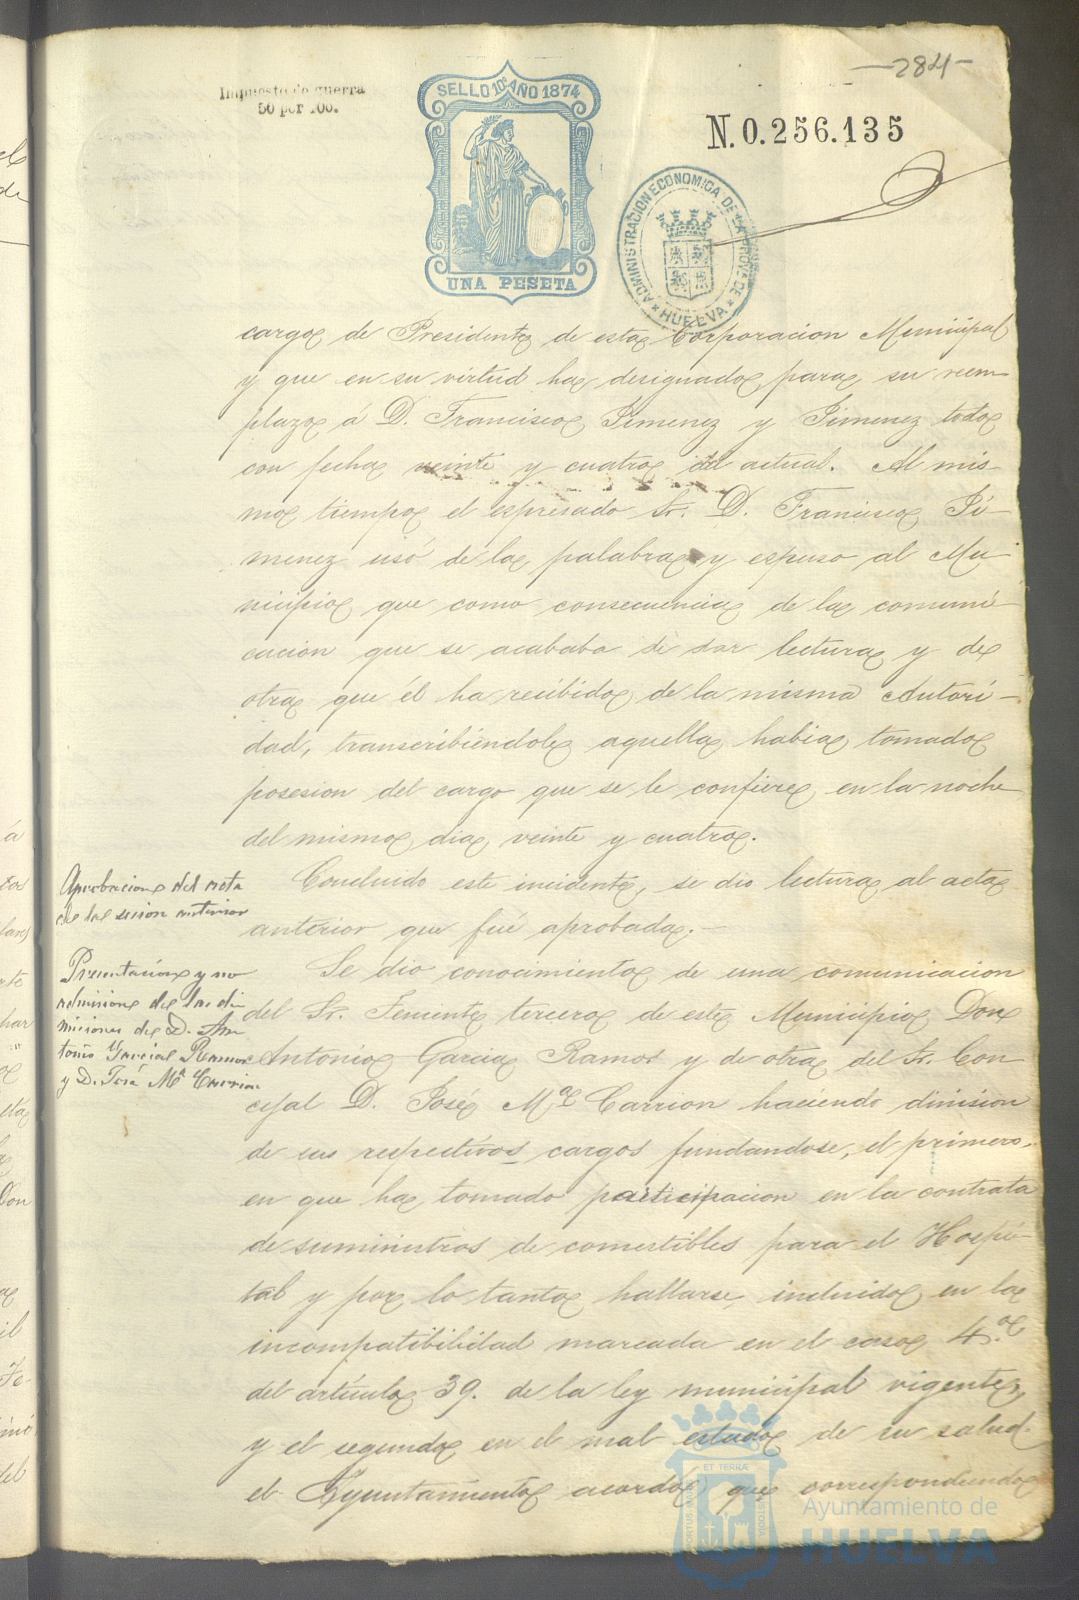 -284-
Impuesto de guerra
50 por 100.
SELLO 10º AÑO 1874
UNA PESETA
N.0.256.135
ADMINISTRACION ECONOMICA DE LA PROVª DE
* HUELVA *
cargo de Presidente de esta Corporacion Municipal
y que en su virtud ha designado para su reem-
plazo á D. Francisco Jimenez y Jimenez todo
con fecha veinte y cuatro del actual. Al mis-
mo tiempo el espresado Sr. D. Francisco Ji-
menez usó de la palabra y espuso al Mu-
nicipio que como consecuencia de la comuni-
cacion que se acababa de dar lectura y de
otra que él ha recibido de la misma Autori-
dad, transcribiéndole aquella habia tomado
posesion del cargo que se le confiere en la noche
del mismo dia veinte y cuatro.
Aprobacion del acta
de la sesion anterior
Concluido este incidente, se dio lectura al acta
anterior que fué aprobada.-
Presentacion y no
admision de las di-
misiones de D. An
tonio Garcia Ramos
y D. José Mª Carrion
Se dio conocimiento de una comunicacion
del Sr. Teniente tercero de este Municipio Don
Antonio Garcia Ramos y de otra del Sr. Con-
cejal D. José Mª Carrion haciendo dimision
de sus respectivos cargos fundandose, el primero,
en que ha tomado participacion en la contrata
de suministros de comestibles para el Hospi-
tal y por lo tanto hallarse incluido en la
incompatibilidad marcada en el caso 4.º
del artículo 39. de la ley municipal vigente,
y el segundo en el mal estado de su salud.
el Ayuntamiento acordo que correspondiendo
ET TERRÆ
PORTUS MARIS
CUSTODIA
Ayuntamiento de
HUELVA